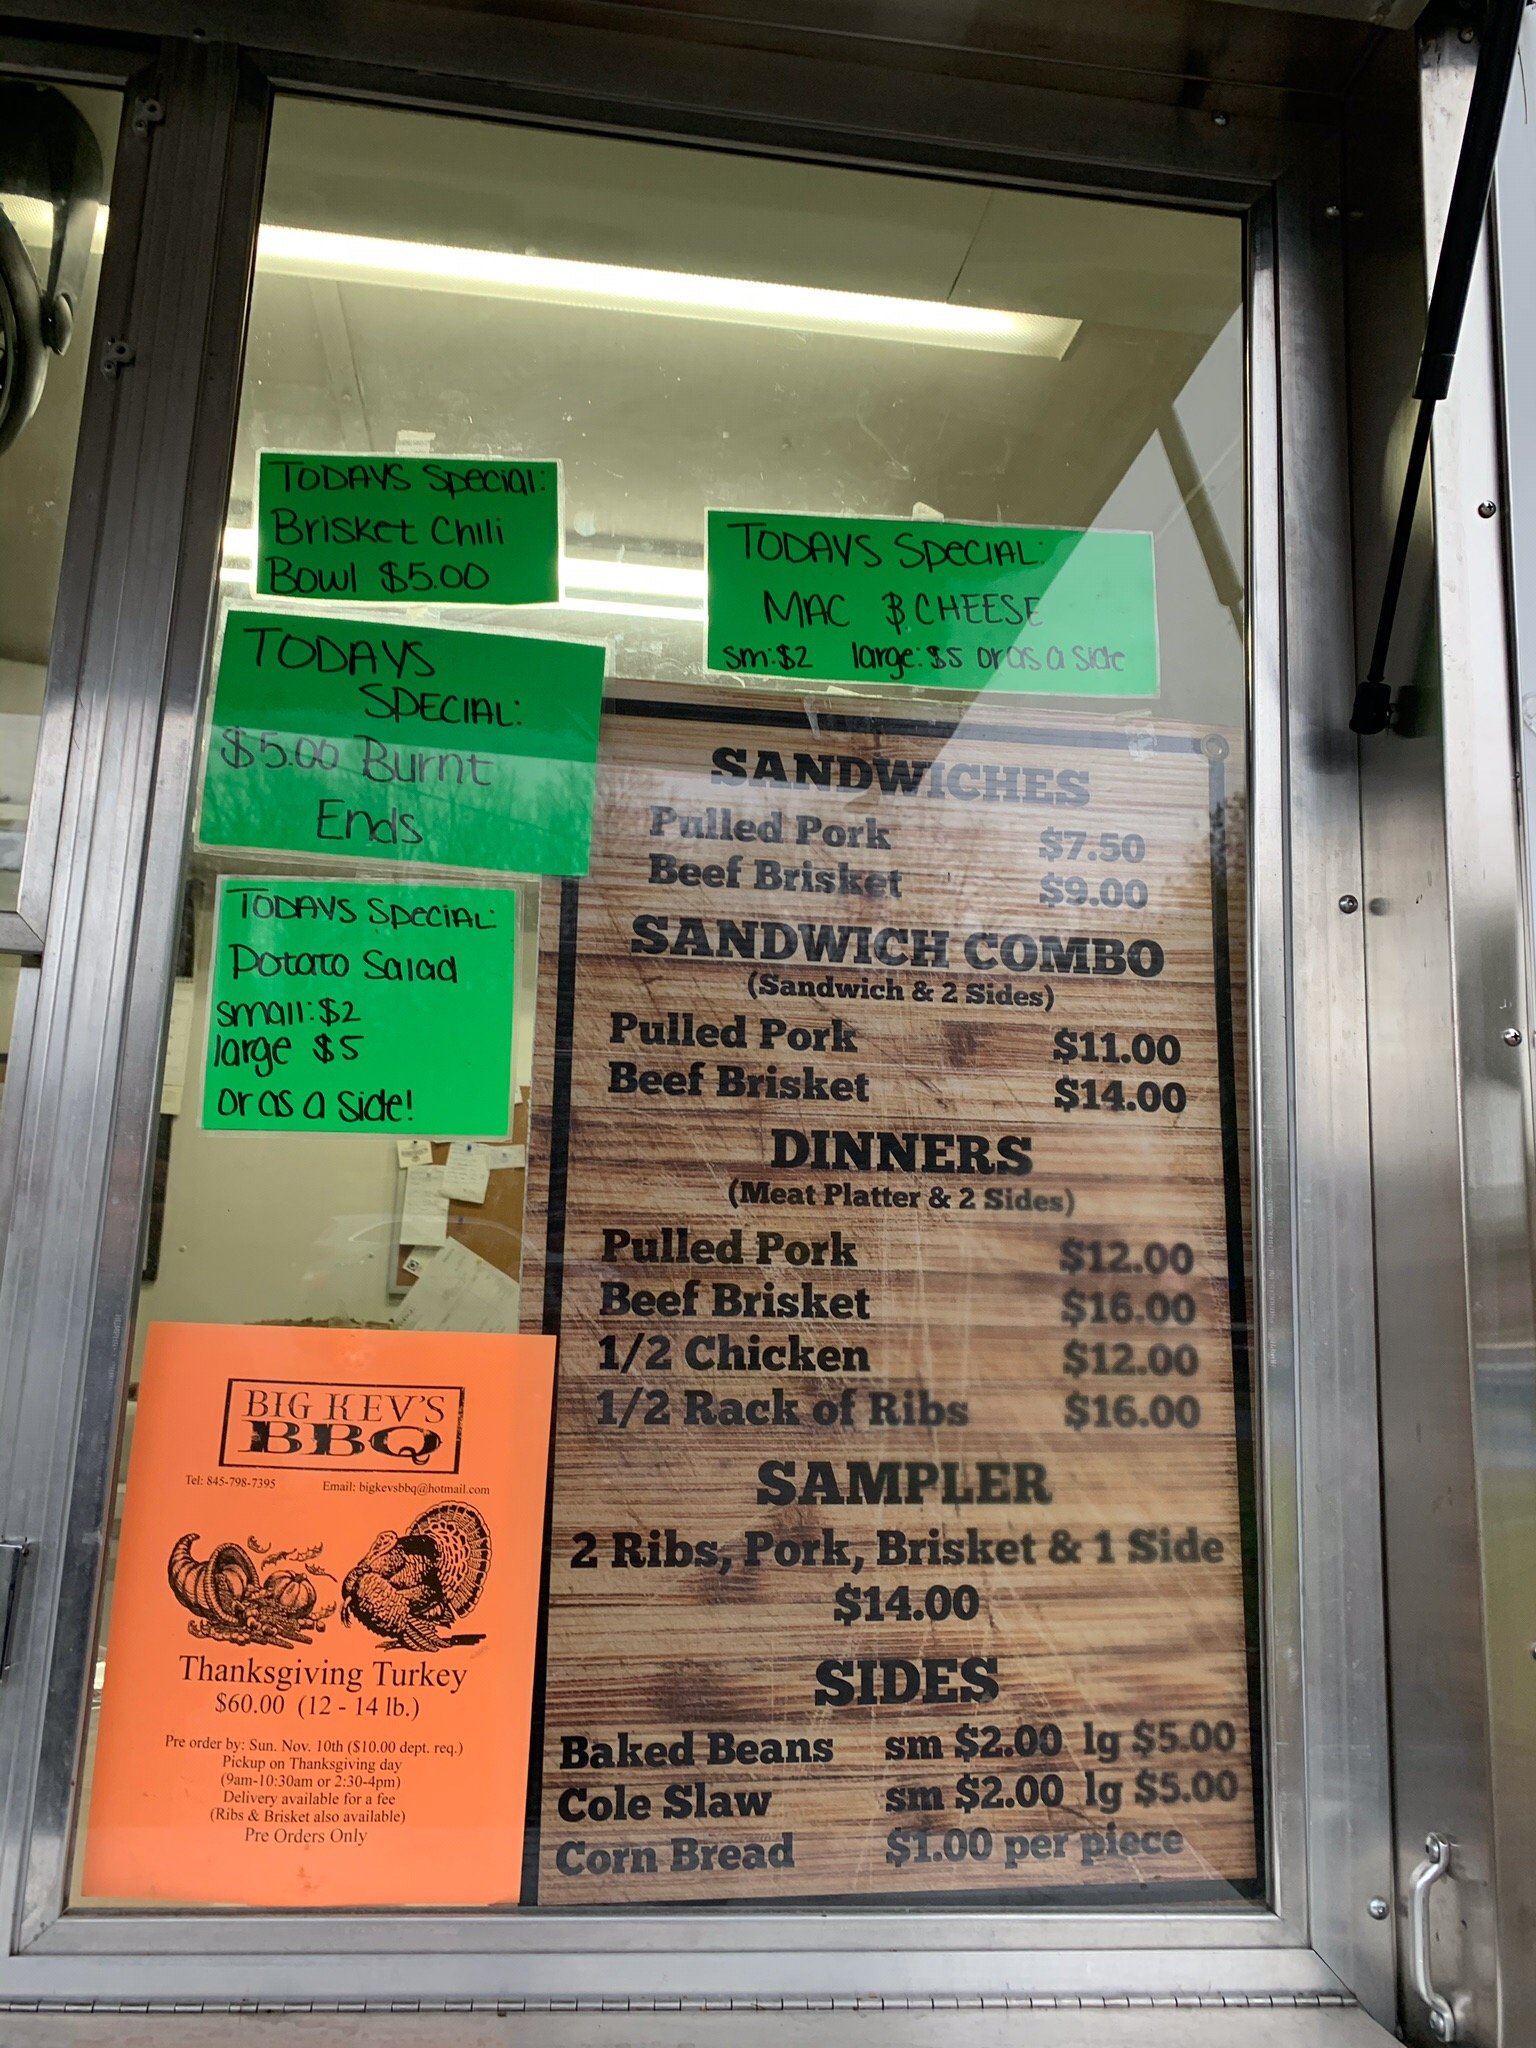 TODAYS Special:
Brisket Chili
Bowl $5.00
TODAYS SPECIAL:
MAC & CHEESE
sm:$2 large:$5 or as a side
TODAYS
SPECIAL:
$5.00 Burnt
Ends
TODAYS SPECIAL:
Potato Salad
small:$2
large $5
or as a side!
SANDWICHES
Pulled Pork $7.50
Beef Brisket $9.00
SANDWICH COMBO
(Sandwich & 2 Sides)
Pulled Pork $11.00
Beef Brisket $14.00
DINNERS
(Meat Platter & 2 Sides)
Pulled Pork $12.00
Beef Brisket $16.00
1/2 Chicken $12.00
1/2 Rack of Ribs $16.00
SAMPLER
2 Ribs, Pork, Brisket & 1 Side
$14.00
SIDES
Baked Beans sm $2.00 lg $5.00
Cole Slaw sm $2.00 lg $5.00
Corn Bread $1.00 per piece
BIG KEV'S
BBQ
Tel: 845-798-7395 Email: bigkevsbbq@hotmail.com
Thanksgiving Turkey
$60.00 (12 - 14 lb.)
Pre order by: Sun. Nov. 10th ($10.00 dept. req.)
Pickup on Thanksgiving day
(9am-10:30am or 2:30-4pm)
Delivery available for a fee
(Ribs & Brisket also available)
Pre Orders Only